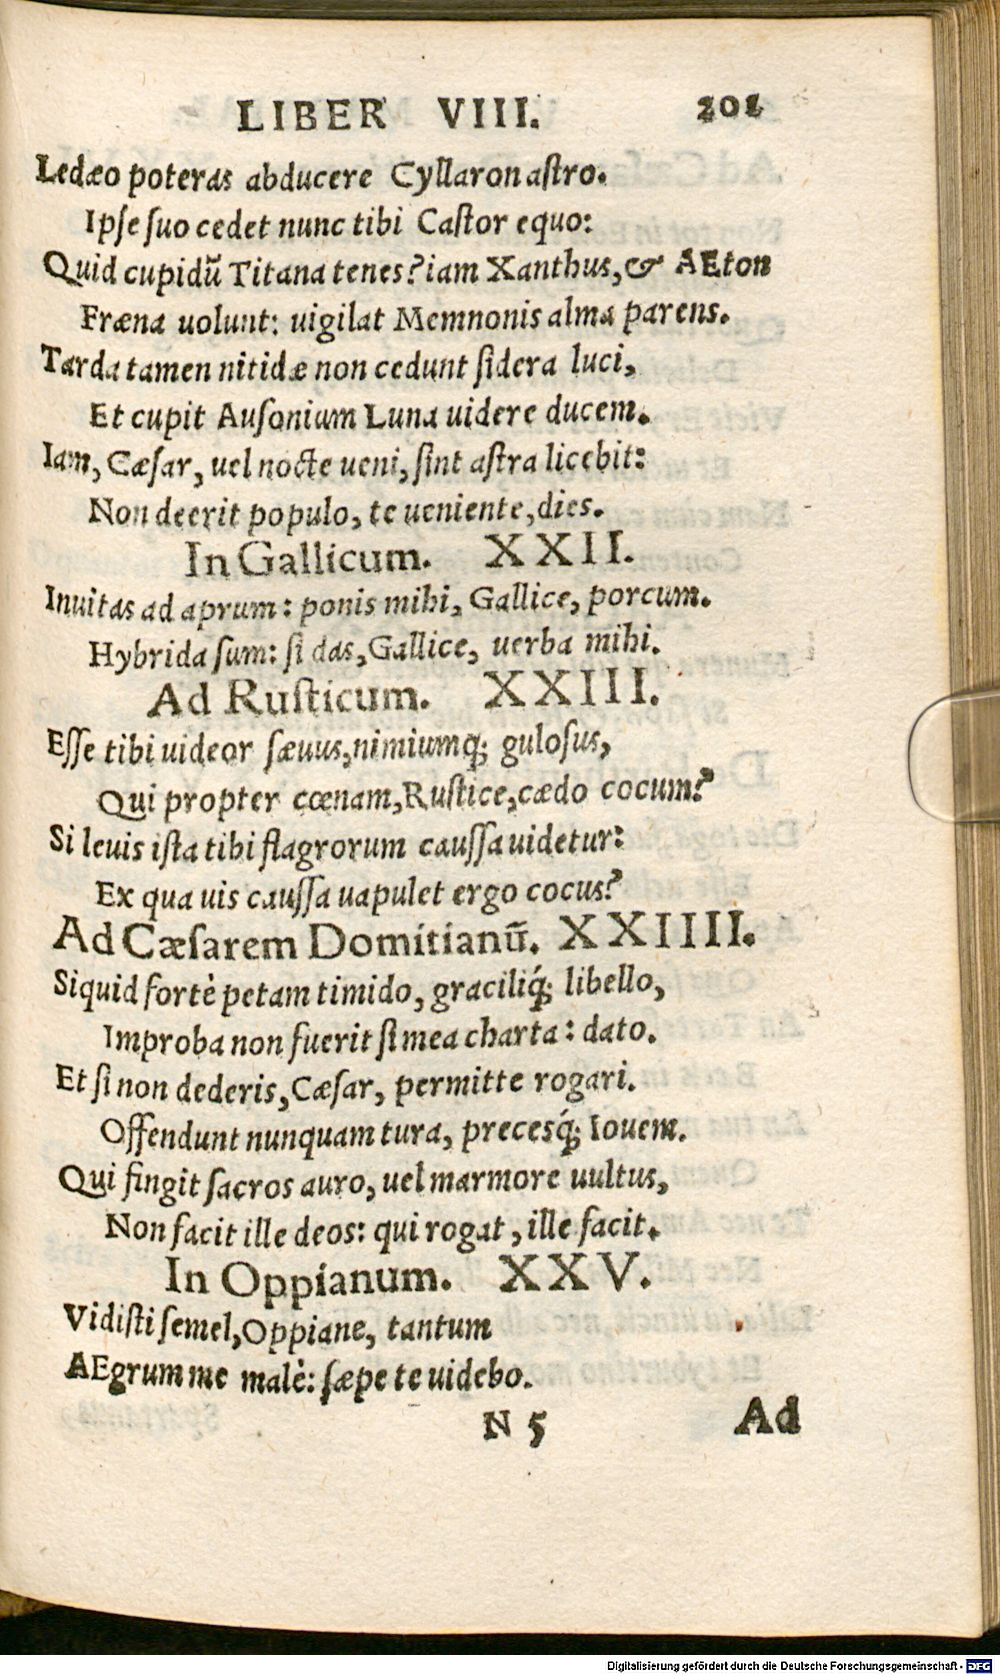 LIBER VIII. 201
Ledæo poteras abducere Cyllaron astro.
Ipſe ſuo cedet nunc tibi Caſtor equo:
Quid cupidũ Titana tenes? iam Xanthus, & AEton
Fræna uolunt: uigilat Memnonis alma parens.
Tarda tamen nitidæ non cedunt ſidera luci,
Et cupit Auſonium Luna uidere ducem.
Iam, Cæſar, uel nocte ueni, ſint aſtra licebit:
Non deerit populo, te ueniente, dies.
In Gallicum. XXII.
Inuitas ad aprum: ponis mihi, Gallice, porcum.
Hybrida ſum: ſi das, Gallice, uerba mihi.
Ad Ruſticum. XXIII.
Eſſe tibi uideor ſæuus, nimiumq; guloſus,
Qui propter cœnam, Ruſtice, cædo cocum?
Si leuis iſta tibi flagrorum cauſſa uidetur:
Ex qua uis cauſſa uapulet ergo cocus?
Ad Cæſarem Domitianũ. XXIIII.
Siquid fortè petam timido, graciliq́; libello,
Improba non fuerit ſi mea charta: dato.
Et ſi non dederis, Cæſar, permitte rogari.
Offendunt nunquam tura, precesq́; Iouem.
Qui fingit ſacros auro, uel marmore uultus,
Non facit ille deos: qui rogat, ille facit.
In Oppianum. XXV.
Vidiſti ſemel, Oppiane, tantum
AEgrum me malè: ſæpe te uidebo.
N 5 Ad
Digitalisierung gefördert durch die Deutsche Forschungsgemeinschaft - DFG